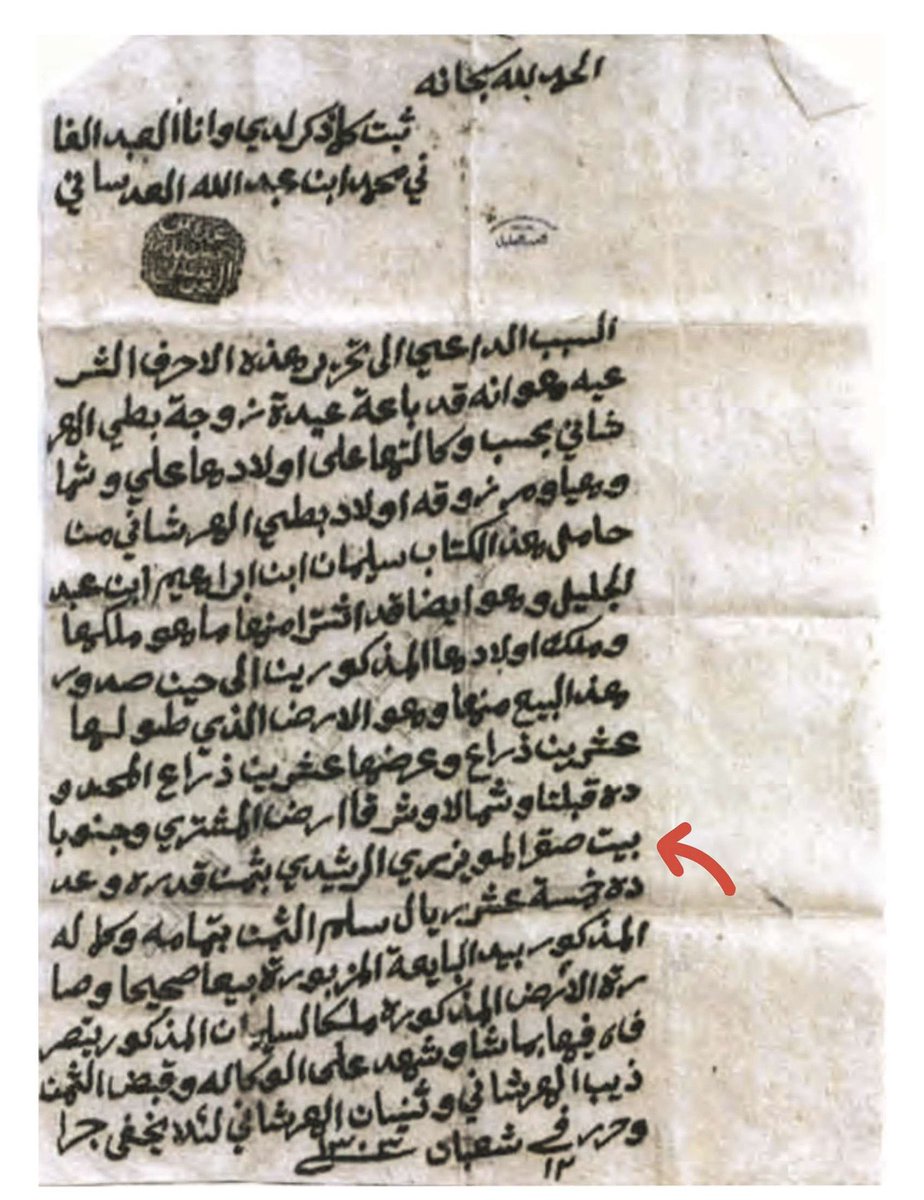 الحمد لله سبحانه
ثبت كلما ذكر لدي وانا العبد الفا
ني محمد ابن عبد الله العدساني
السبب الداعي الى تحرير هذه الاحرف الشر
عيه هو انه قد باعة عيدة زوجة بطي الهر
شاني بحسب وكالتها على اولادها علي وشما
وهيا ومرزوقه اولاد بطي الهرشاني من
حامل هذ الكتاب سليمان ابن ابراهيم ابن عبد
الجليل وهو ايضا قد اشترا منها ما هو ملكها
وملك اولادها المذكورين الى حين صدور
هذ البيع منها وهو الارض الذي طولها
عشرين ذراع وعرضها عشرين ذراع المحدو
ده قبلتا وشمالا وشرقا ارض المشتري وجنوبا
بيت صقر المويزيري الرشيدي بثمن قدره وعد
ده خمسة عشر ريال سلم الثمن بتمامه وكماله
المذكور بيد البايعة المزبورة بيعا صحيحا وصا
رة الأرض المذكورة ملكا لسليمان المذكور يتصر
ف فيها بما شا وشهد على الوكاله وقبض الثمن
ذيب الهرشاني وثنيان الهرشاني لئلا يخفى جرا
وحرر في ١٢ شعبان ١٣٠٣